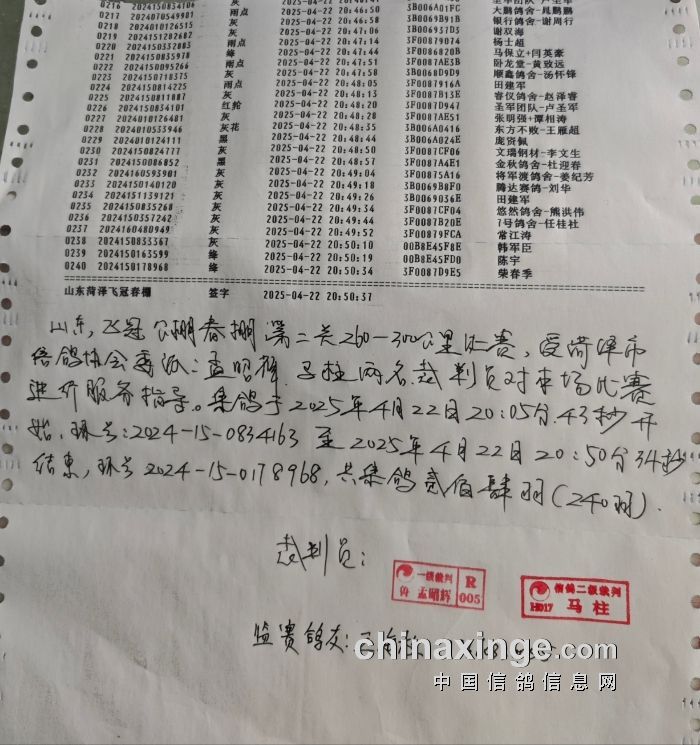 0216 2024150854106 灰
0217 2024070549901 雨点 2025-04-22 20:46:50 3B006A01FC 大鹏鸽舍-尾鹏鹏
0218 2024010126515 灰 2025-04-22 20:46:58 3B0069B91B 银行鸽舍-谢周行
0219 2024151282682 灰 2025-04-22 20:47:06 3B006937D3 谢双海
0220 2024150332883 雨点 2025-04-22 20:47:14 3F00879074 杨士超
0221 2024150835978 灰 2025-04-22 20:47:44 3F0086820B 马保立+闫英豪
0222 2024150095266 雨点 2025-04-22 20:47:51 3F0087AE3B 卧龙堂-黄致远
0223 2024150718375 灰 2025-04-22 20:47:58 3B0068D9D9 顺鑫鸽舍-汤怀锋
0224 2024150814225 雨点 2025-04-22 20:48:05 3F0087916A 田建军
0225 2024150811887 灰 2025-04-22 20:48:13 3F0087B13E 春仪鸽舍-赵泽睿
0226 2024150834101 红纶 2025-04-22 20:48:20 3F0087D947 圣军团队-卢圣军
0227 2024010126481 灰 2025-04-22 20:48:28 3F0087AE51 张明强+谭相涛
0228 2024010533946 灰花 2025-04-22 20:48:35 3B006A0416 东方不败-王雁超
0229 2024010124111 黑 2025-04-22 20:48:44 3B006A024E 庞贤佩
0230 2024150824777 灰 2025-04-22 20:48:50 3F0087CF06 文瑞钢材-李文生
0231 2024150086852 黑 2025-04-22 20:48:57 3F0087A4E1 金秋鸽舍-杜迎春
0232 2024160593901 灰 2025-04-22 20:49:04 3F00875A16 将军渡鸽舍-姜纪芳
0233 2024150140120 灰 2025-04-22 20:49:18 3B0069B8F0 腾达赛鸽-刘华
0234 2024151139121 灰 2025-04-22 20:49:26 3B0069036E 田建军
0235 2024150835268 灰 2025-04-22 20:49:34 3F0087CF04 悠然鸽舍-熊洪伟
0236 2024150357242 灰 2025-04-22 20:49:44 3F0087B20E 7号鸽舍-任桂社
0237 2024160480949 灰 2025-04-22 20:49:52 3F0079FCA 常江涛
0238 2024150833367 灰 2025-04-22 20:50:10 00B8E45F8E 韩军臣
0239 2024150163599 绛 2025-04-22 20:50:19 00B8E45FD0 陈宇
0240 2024150178968 绛 2025-04-22 20:50:34 3F0087D9E5 荣春季
山东菏泽飞冠春棚 签字 2025-04-22 20:50:37
山东,飞冠公棚春棚第二关260-300公里比赛,受菏泽市
信鸽协会委派:孟昭辉.马柱两名裁判员对本场比赛
进行服务指导。集鸽于2025年4月22日20:05分.43秒开
始,环号:2024-15-0834163 至2025年4月22日20:50分34秒
结束,环号2024-15-0178968,共集鸽贰佰肆羽(240羽).
裁判员:
一级裁判 R
鲁 孟昭辉 005
信鸽二级裁判
H017 马柱
监赛鸽友:
chinaxinge.com
中国信鸽信息网